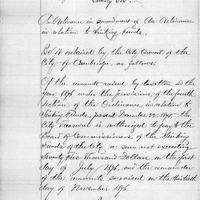 An Ordinance in amendment of An Ordinance
in relation to Sinking Funds.
Be it ordained by the City Council of the
City of Cambridge, as follows:
Of the amounts raised by taxation in the
year 1896 under the provisions of the fourth
section of the Ordinance in relation to
Sinking Funds, passed December 1895, the
City Treasurer is authorized to pay to the
Board of Commissioners of the Sinking
Funds of the City, a sum not exceeding
Seventy five Thousand Dollars on the first
day of July, 1896, and the remainder
of the amounts so raised on the thirtieth
day of November 1896.